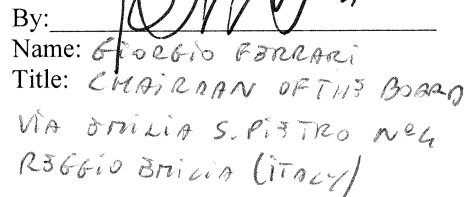 By:
Name: GIORGIO FERRARI
Title: CHAIRMAN OF THE BOARD
VIA EMILIA S. PIETRO Nº4
REGGIO EMILIA (ITALY)